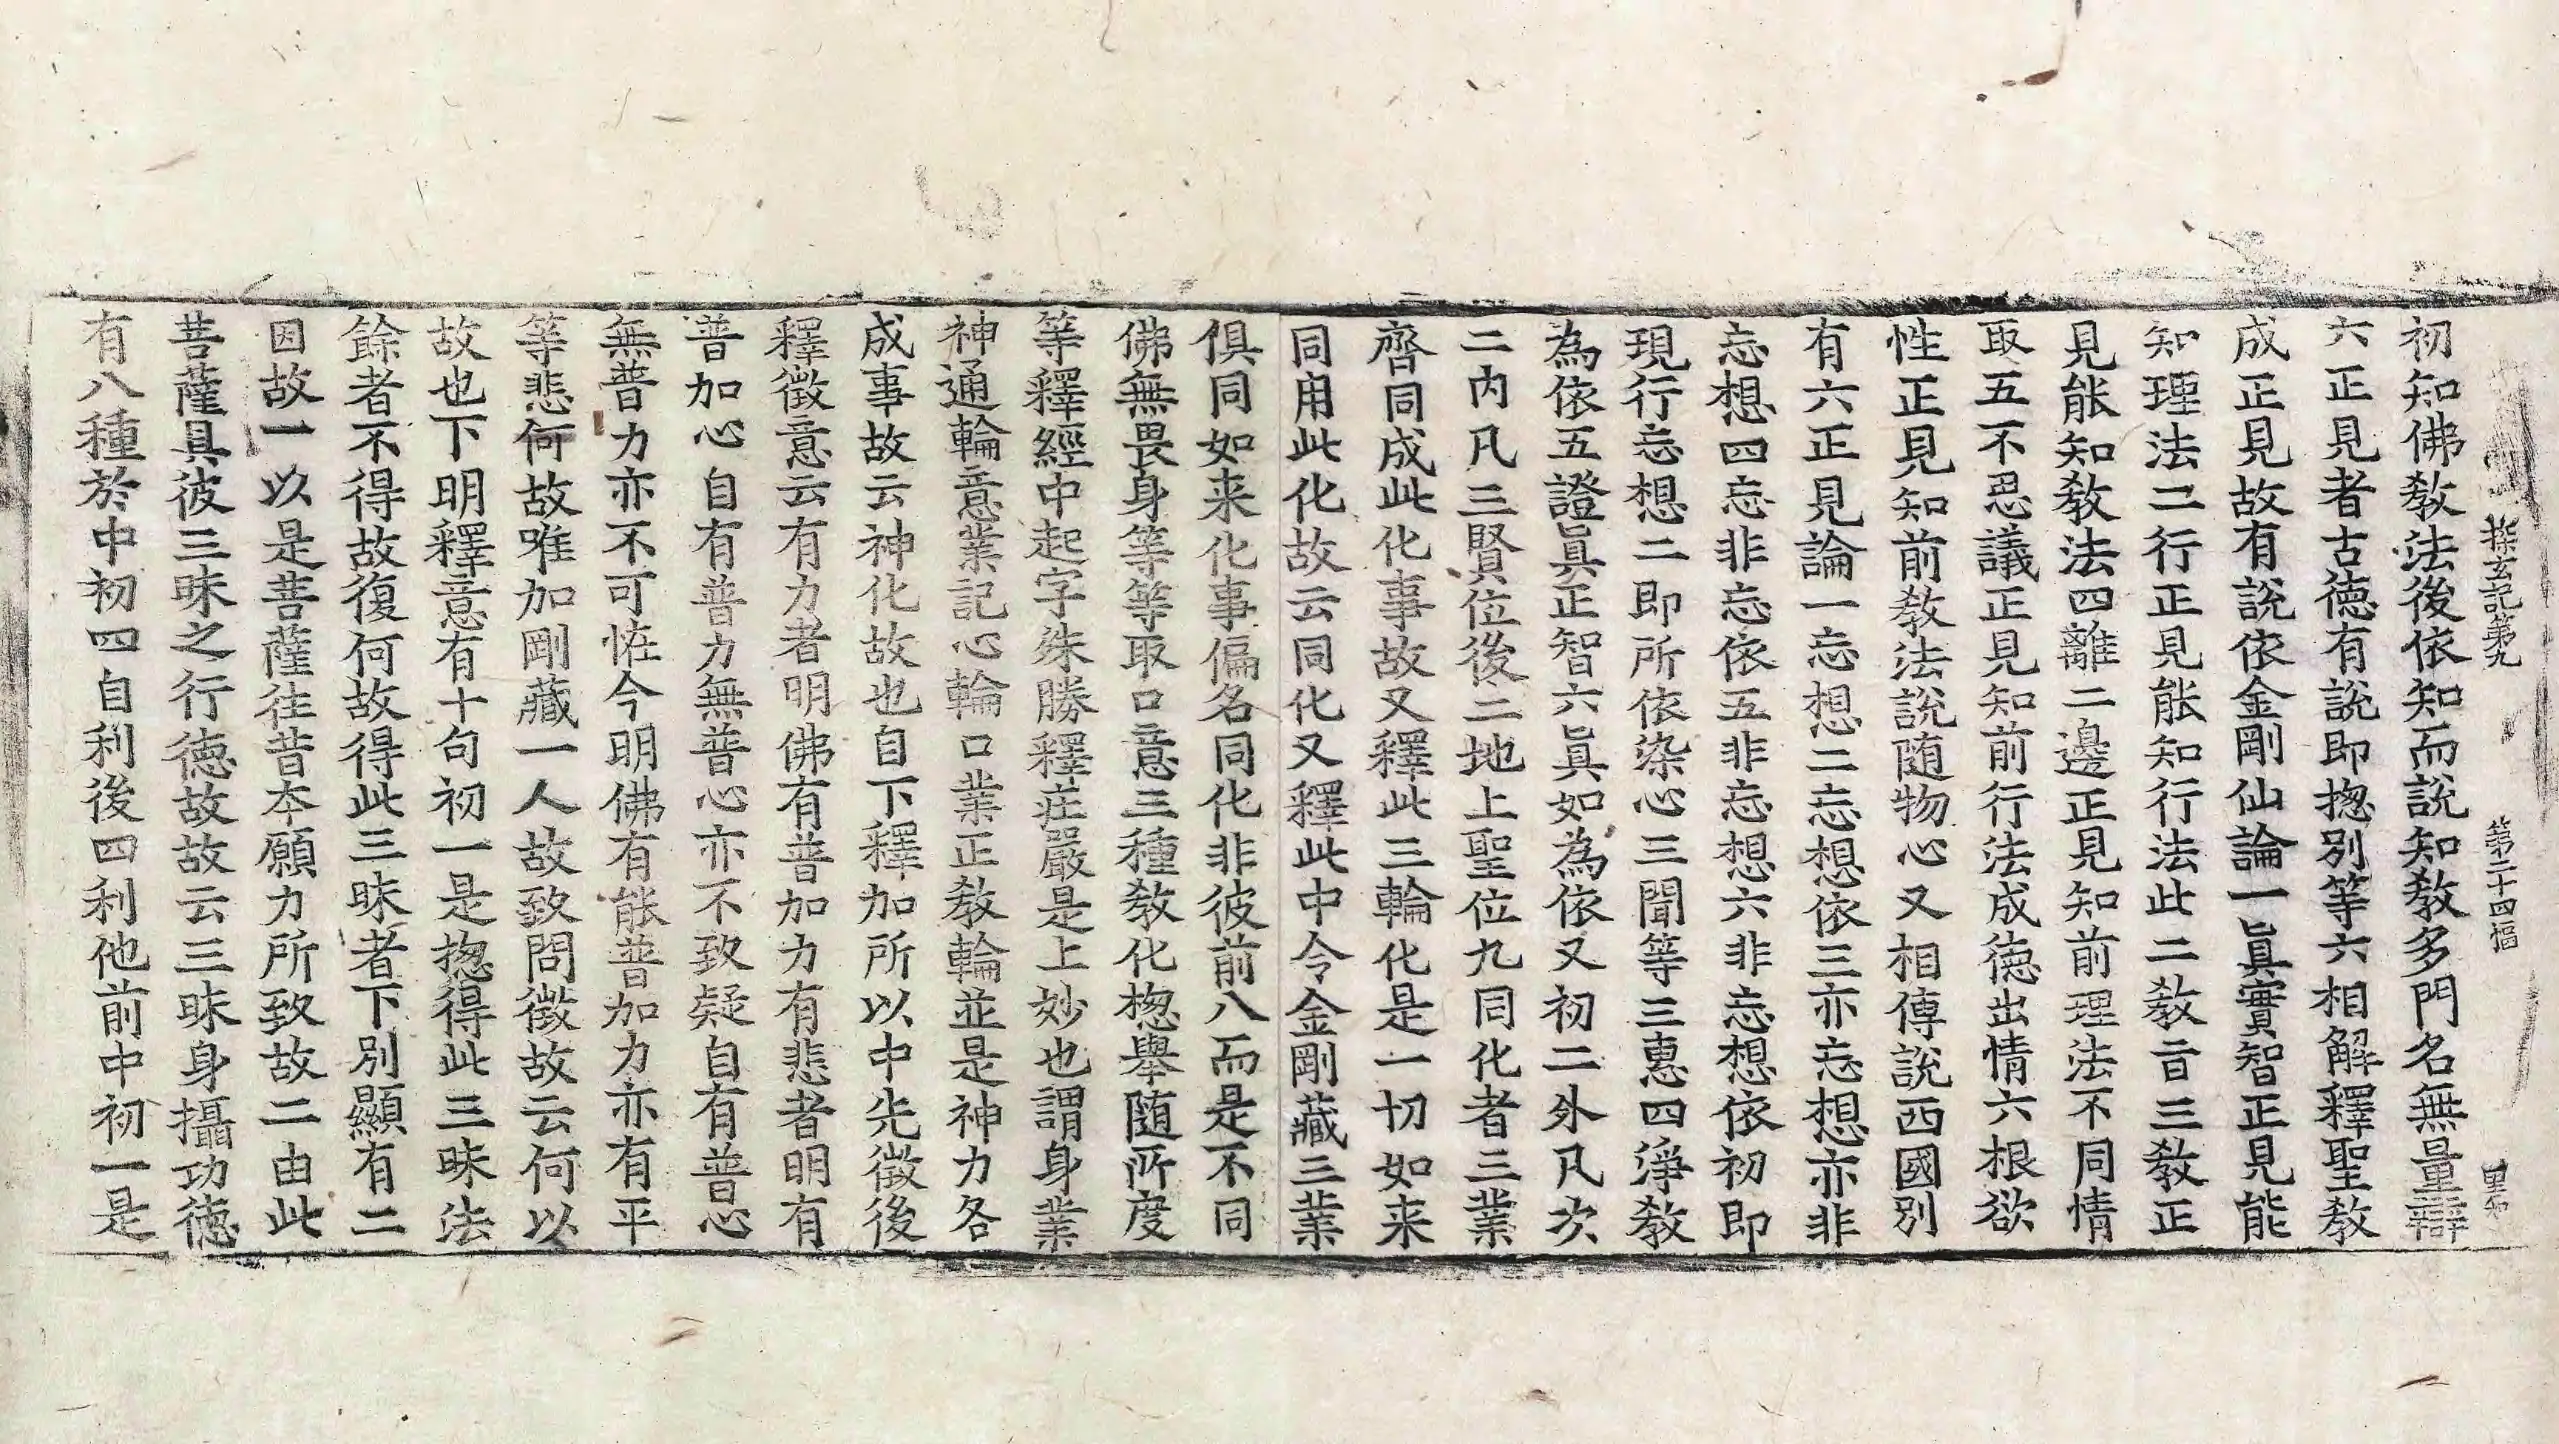 探玄記第九　第二十四幅　里和
初知佛敎法後依知而說知敎多門名無量辯
六正見者古德有說即揔別等六相解釋聖敎
成正見故有說依金剛仙論一眞實智正見能
知理法二行正見能知行法此二敎旨三敎正
見能知敎法四離二邊正見知前理法不同情
取五不思議正見知前行法成德出情六根欲
性正見知前敎法說随物心又相傳說西國別
有六正見論一忘想二忘想依三亦忘想亦非
忘想四忘非忘依五非忘想六非忘想依初即
現行忘想二即所依染心三聞等三惠四淨敎
為依五證眞正智六眞如為依又初二外凡次
二內凡三賢位後二地上聖位九同化者三業
齊同成此化事故又釋此三輪化是一切如来
同用此化故云同化又釋此中令金剛藏三業
俱同如来化事偏名同化非彼前八而是不同
佛無畏身等等取口意三種敎化揔舉随所度
等釋經中起字殊勝釋莊嚴是上妙也謂身業
神通輪意業記心輪口業正敎輪並是神力各
成事故云神化故也自下釋加所以中先徵後
釋徵意云有力者明佛有普加力有悲者明有
普加心自有普力無普心亦不致疑自有普心
無普力亦不可恠今明佛有能普加力亦有平
等悲何故唯加剛藏一人故致問徵故云何以
故也下明釋意有十句初一是揔得此三昧法
餘者不得故復何故得此三昧者下別顯有二
因故一以是菩薩往昔本願力所致故二由此
菩薩具彼三昧之行德故故云三昧身攝功德
有八種於中初四自利後四利他前中初一是